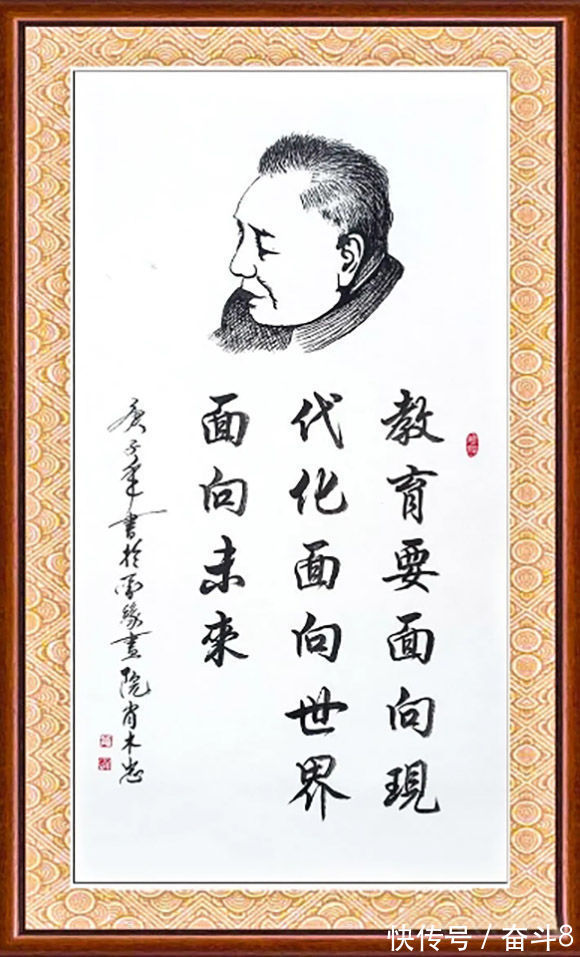 教育要面向現
代化面向世界
面向未來
庚子年書於墨緣畫院肖木忠
快传号 / 奋斗8